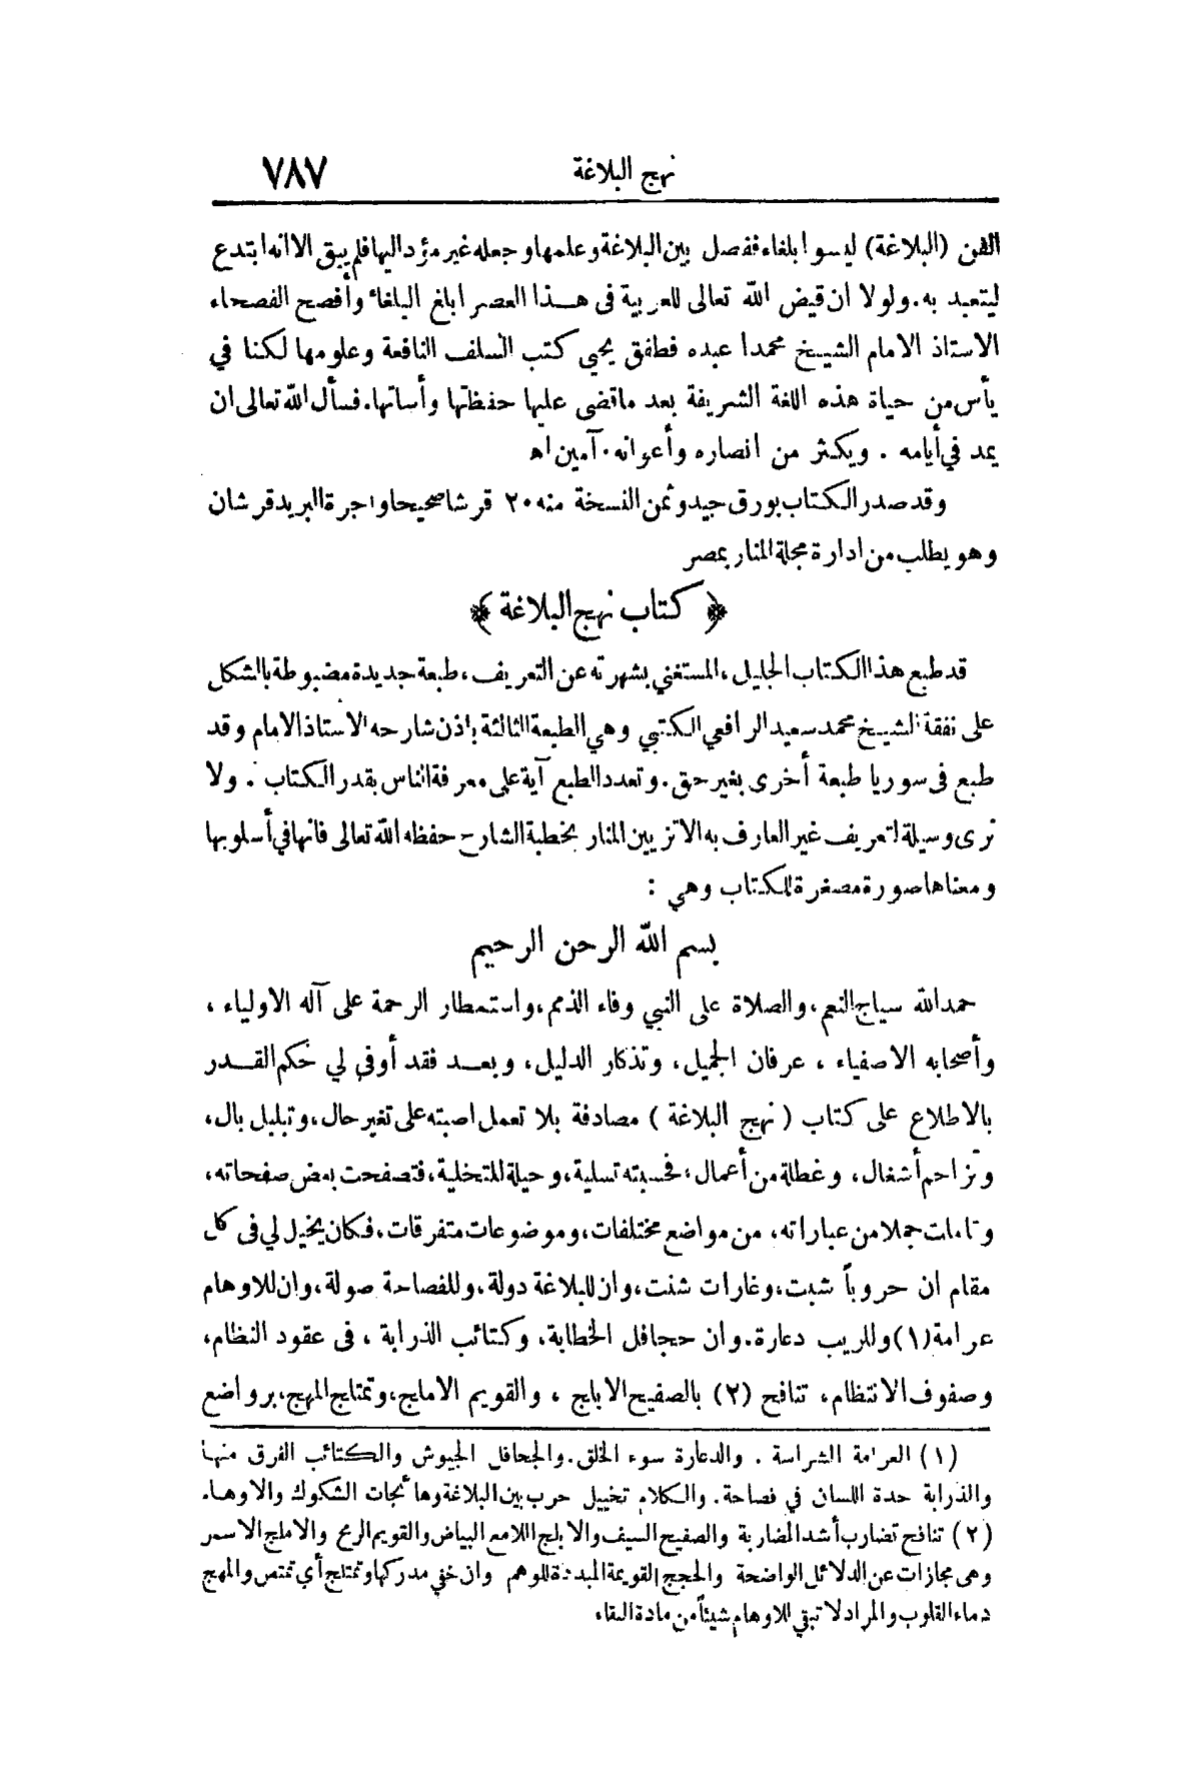 نهج البلاغة ٧٨٧
الفن (البلاغة) ليسوا بلغاء ففصل بين البلاغة وعلمها وجعله غير مؤد اليها فلم يبق الا انه ابتدع
ليتعبد به. ولولا ان قيض الله تعالى للعربية فى هذا العصر ابلغ البلغاء وأفصح الفصحاء
الاستاذ الامام الشيخ محمدا عبده فطفق يحيي كتب السلف النافعة وعلومها لكنا في
يأس من حياة هذه اللغة الشريفة بعد ما قضى عليها حفظتها وأساتها. فسأل الله تعالى ان
يمد في أيامه . ويكثر من انصاره وأعوانه . آمين اه
وقد صدر الكتاب بورق جيد وثمن النسخة منه ٢٠ قرشا صحيحا واجرة البريد قرشان
وهو يطلب من ادارة مجلة المنار بمصر
﴿ كتاب نهج البلاغة ﴾
قد طبع هذا الكتاب الجليل ، المستغني بشهرته عن التعريف ، طبعة جديدة مضبوطة بالشكل
على نفقة الشيخ محمد سعيد الرافعي الكتبي وهي الطبعة الثالثة باذن شارحه الاستاذ الامام وقد
طبع فى سوريا طبعة أخرى بغير حق . وتعدد الطبع آية على معرفة الناس بقدر الكتاب . ولا
نرى وسيلة لتعريف غير العارف به الا تزيين المنار بخطبة الشارح حفظه الله تعالى فانها في أسلوبها
ومعناها صورة مصغرة للكتاب وهي :
بسم الله الرحمن الرحيم
حمد الله سياج النعم ، والصلاة على النبي وفاء الذمم ، واستمطار الرحمة على آله الاولياء ،
وأصحابه الاصفياء ، عرفان الجميل ، وتذكار الدليل ، وبعد فقد أوفى لي حكم القدر
بالاطلاع على كتاب ( نهج البلاغة ) مصادفة بلا تعمل اصبته على تغير حال ، وتبلبل بال ،
وتزاحم أشغال ، وعطلة من أعمال ، فحسبته تسلية ، وحيلة للتخلية ، فتصفحت بعض صفحاته ،
وتأملت جملا من عباراته ، من مواضع مختلفات ، وموضوعات متفرقات ، فكان يخيل لي فى كل
مقام ان حروباً شبت ، وغارات شنت ، وان للبلاغة دولة ، وللفصاحة صولة ، وان للاوهام
عرامة (١) وللريب دعارة . وان جحافل الخطابة ، وكتائب الذرابة ، فى عقود النظام ،
وصفوف الانتظام ، تنافح (٢) بالصفيح الابلج ، والقويم الاملج ، وتمتلج المهج ، برواضع
(١) العرامة الشراسة . والدعارة سوء الخلق . والجحافل الجيوش والكتائب الفرق منها
والذرابة حدة اللسان في فصاحة . والكلام تخييل حرب بين البلاغة وهائجات الشكوك والاوهام
(٢) تنافح تضارب أشد المضاربة والصفيح السيف والابلج اللامع البياض والقويم الرمح والاملج الاسمر
وهى مجازات عن الدلائل الواضحة والحجج القويمة المبددة للوهم وان خفي مدركها وتمتلج أي تمتص والمهج
دماء القلوب والمراد لا تبقي للاوهام شيئاً من مادة البقاء